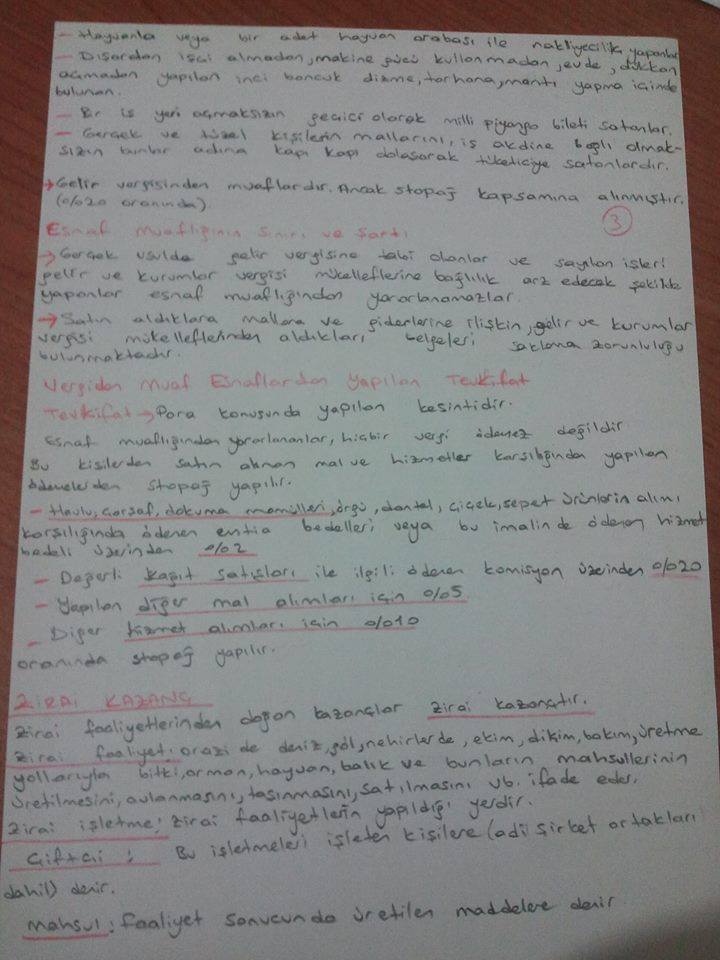 - Hayvanla veya bir adet hayvan arabası ile nakliyecilik yapanlar
- Dışardan işçi almadan, makine gücü kullanmadan, evde, dükkan
açmadan yapılan inci boncuk dizme, tarhana, mantı yapma içinde
bulunan.
- Bir iş yeri açmaksızın geçici olarak milli piyango bileti satanlar.
- Gerçek ve tüzel kişilerin mallarını, iş akdine bağlı olmak-
sızın bunlar adına kapı kapı dolaşarak tüketiciye satanlardır.
→ Gelir vergisinden muaflardır. Ancak stopağ kapsamına alınmıştır.
(%20 oranında)
3
Esnaf muaflığının sınırı ve Şartı
→ Gerçek usulde gelir vergisine tabi olanlar ve sayılan işleri
gelir ve kurumlar vergisi mükelleflerine bağlılık arz edecek şekilde
yapanlar esnaf muaflığından yararlanamazlar.
→ Satın aldıkları mallara ve giderlerine ilişkin, gelir ve kurumlar
vergisi mükelleflerinden aldıkları belgeleri saklama zorunluluğu
bulunmaktadır.
Vergiden Muaf Esnaflardan Yapılan Tevkifat
Tevkifat → Para konusunda yapılan kesintidir.
Esnaf muaflığından yararlananlar, hiçbir vergi ödemez değildir
Bu kişilerden satın alınan mal ve hizmetler karşılığında yapılan
ödemelerden stopağ yapılır.
- Havlu, çarşaf, dokuma mamülleri, örgü, dantel, çiçek, sepet ürünlerin alımı
karşılığında ödenen emtia bedelleri veya bu imalinde ödenen hizmet
bedeli üzerinden %2
- Değerli kağıt satışları ile ilgili ödenen komisyon üzerinden %20
- Yapılan diğer mal alımları için %5
- Diğer hizmet alımları için %10
oranında stopağ yapılır.
ZİRAİ KAZANÇ
Zirai faaliyetlerinden doğan kazançlar zirai kazançtır.
Zirai faaliyet: arazi de deniz, göl, nehirlerde, ekim, dikim, bakım, üretme
yollarıyla bitki, orman, hayvan, balık ve bunların mahsullerinin
üretilmesini, avlanmasını, taşınmasını, satılmasını vb. ifade eder.
Zirai işletme: zirai faaliyetlerin yapıldığı yerdir.
Çiftçi: Bu işletmeleri işleten kişilere (adi şirket ortakları
dahil) denir.
Mahsul: faaliyet sonucunda üretilen maddelere denir